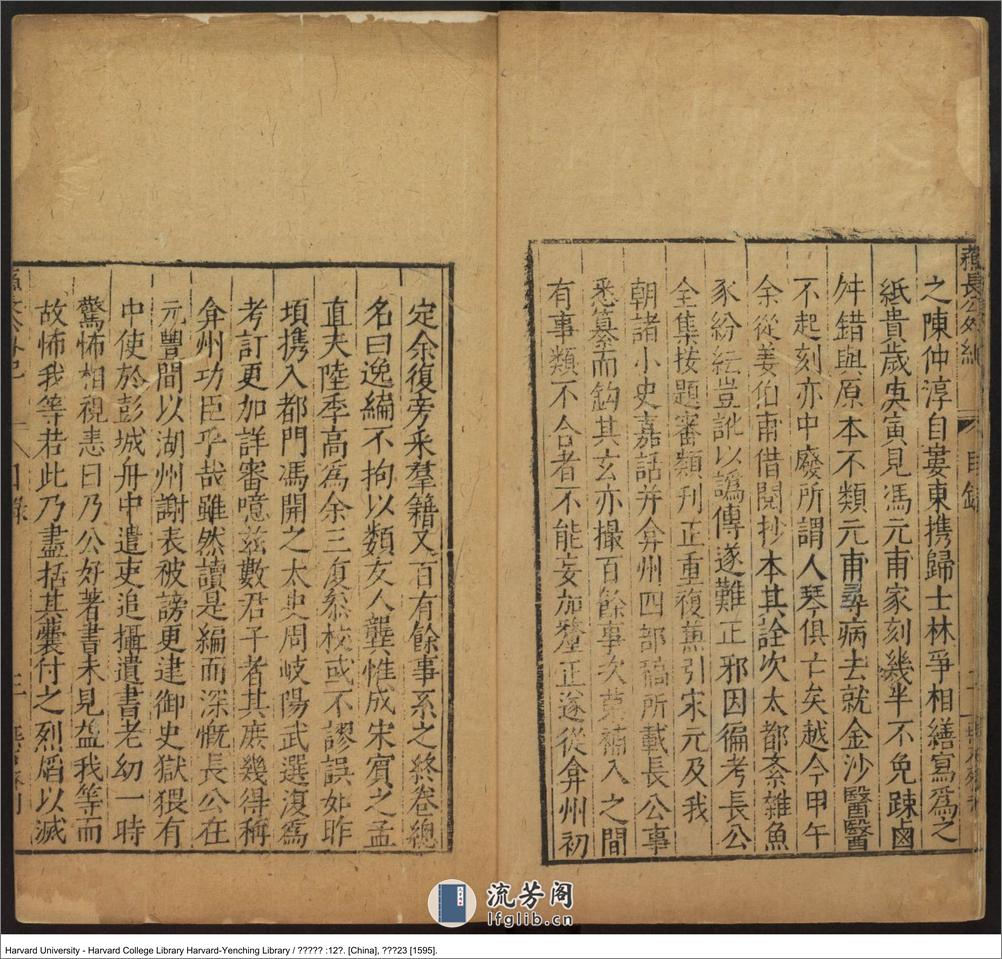 蘇長公外紀
目錄
二
之陳仲淳自婁東携歸士林爭相繕寫爲之
紙貴歳庚寅見馮元甫家刻幾半不免踈鹵
舛錯與原本不類元甫尋病去就金沙醫醫
不起刻亦中廢所謂人琴俱亡矣越今甲午
余從姜伯甫借閱抄本其詮次太都紊雜魚
豕紛紜豈訛以譌傳遂難正邪因徧考長公
全集按題審類刊正重複蒐引宋元及我
朝諸小史嘉話并弇州四部稿所載長公事
悉纂而鈎其玄亦撮百餘事次苐補入之間
有事類不合者不能妄加釐正遂從弇州初
定余復旁采羣籍又百有餘事系之終卷緫
名曰逸編不拘以類友人龔惟成宋賓之孟
直夫陸季高爲余三復叅校或不謬誤如昨
項携入都門馮開之太史周岐陽武選復爲
考訂更加詳審噫玆數君子者其庶幾得稱
弇州功臣乎哉雖然讀是編而深慨長公在
元豐間以湖州謝表被謗更逮御史獄猥有
中使於彭城舟中遣吏追攝遺書老幼一時
驚怖相視恚曰乃公好著書未見益我等而
故怖我等若此乃盡括其囊付之烈熖以滅
目錄
三
流芳阁
lfglib.cn
Harvard University - Harvard College Library Harvard-Yenching Library / ????? :12?. [China], ???23 [1595].